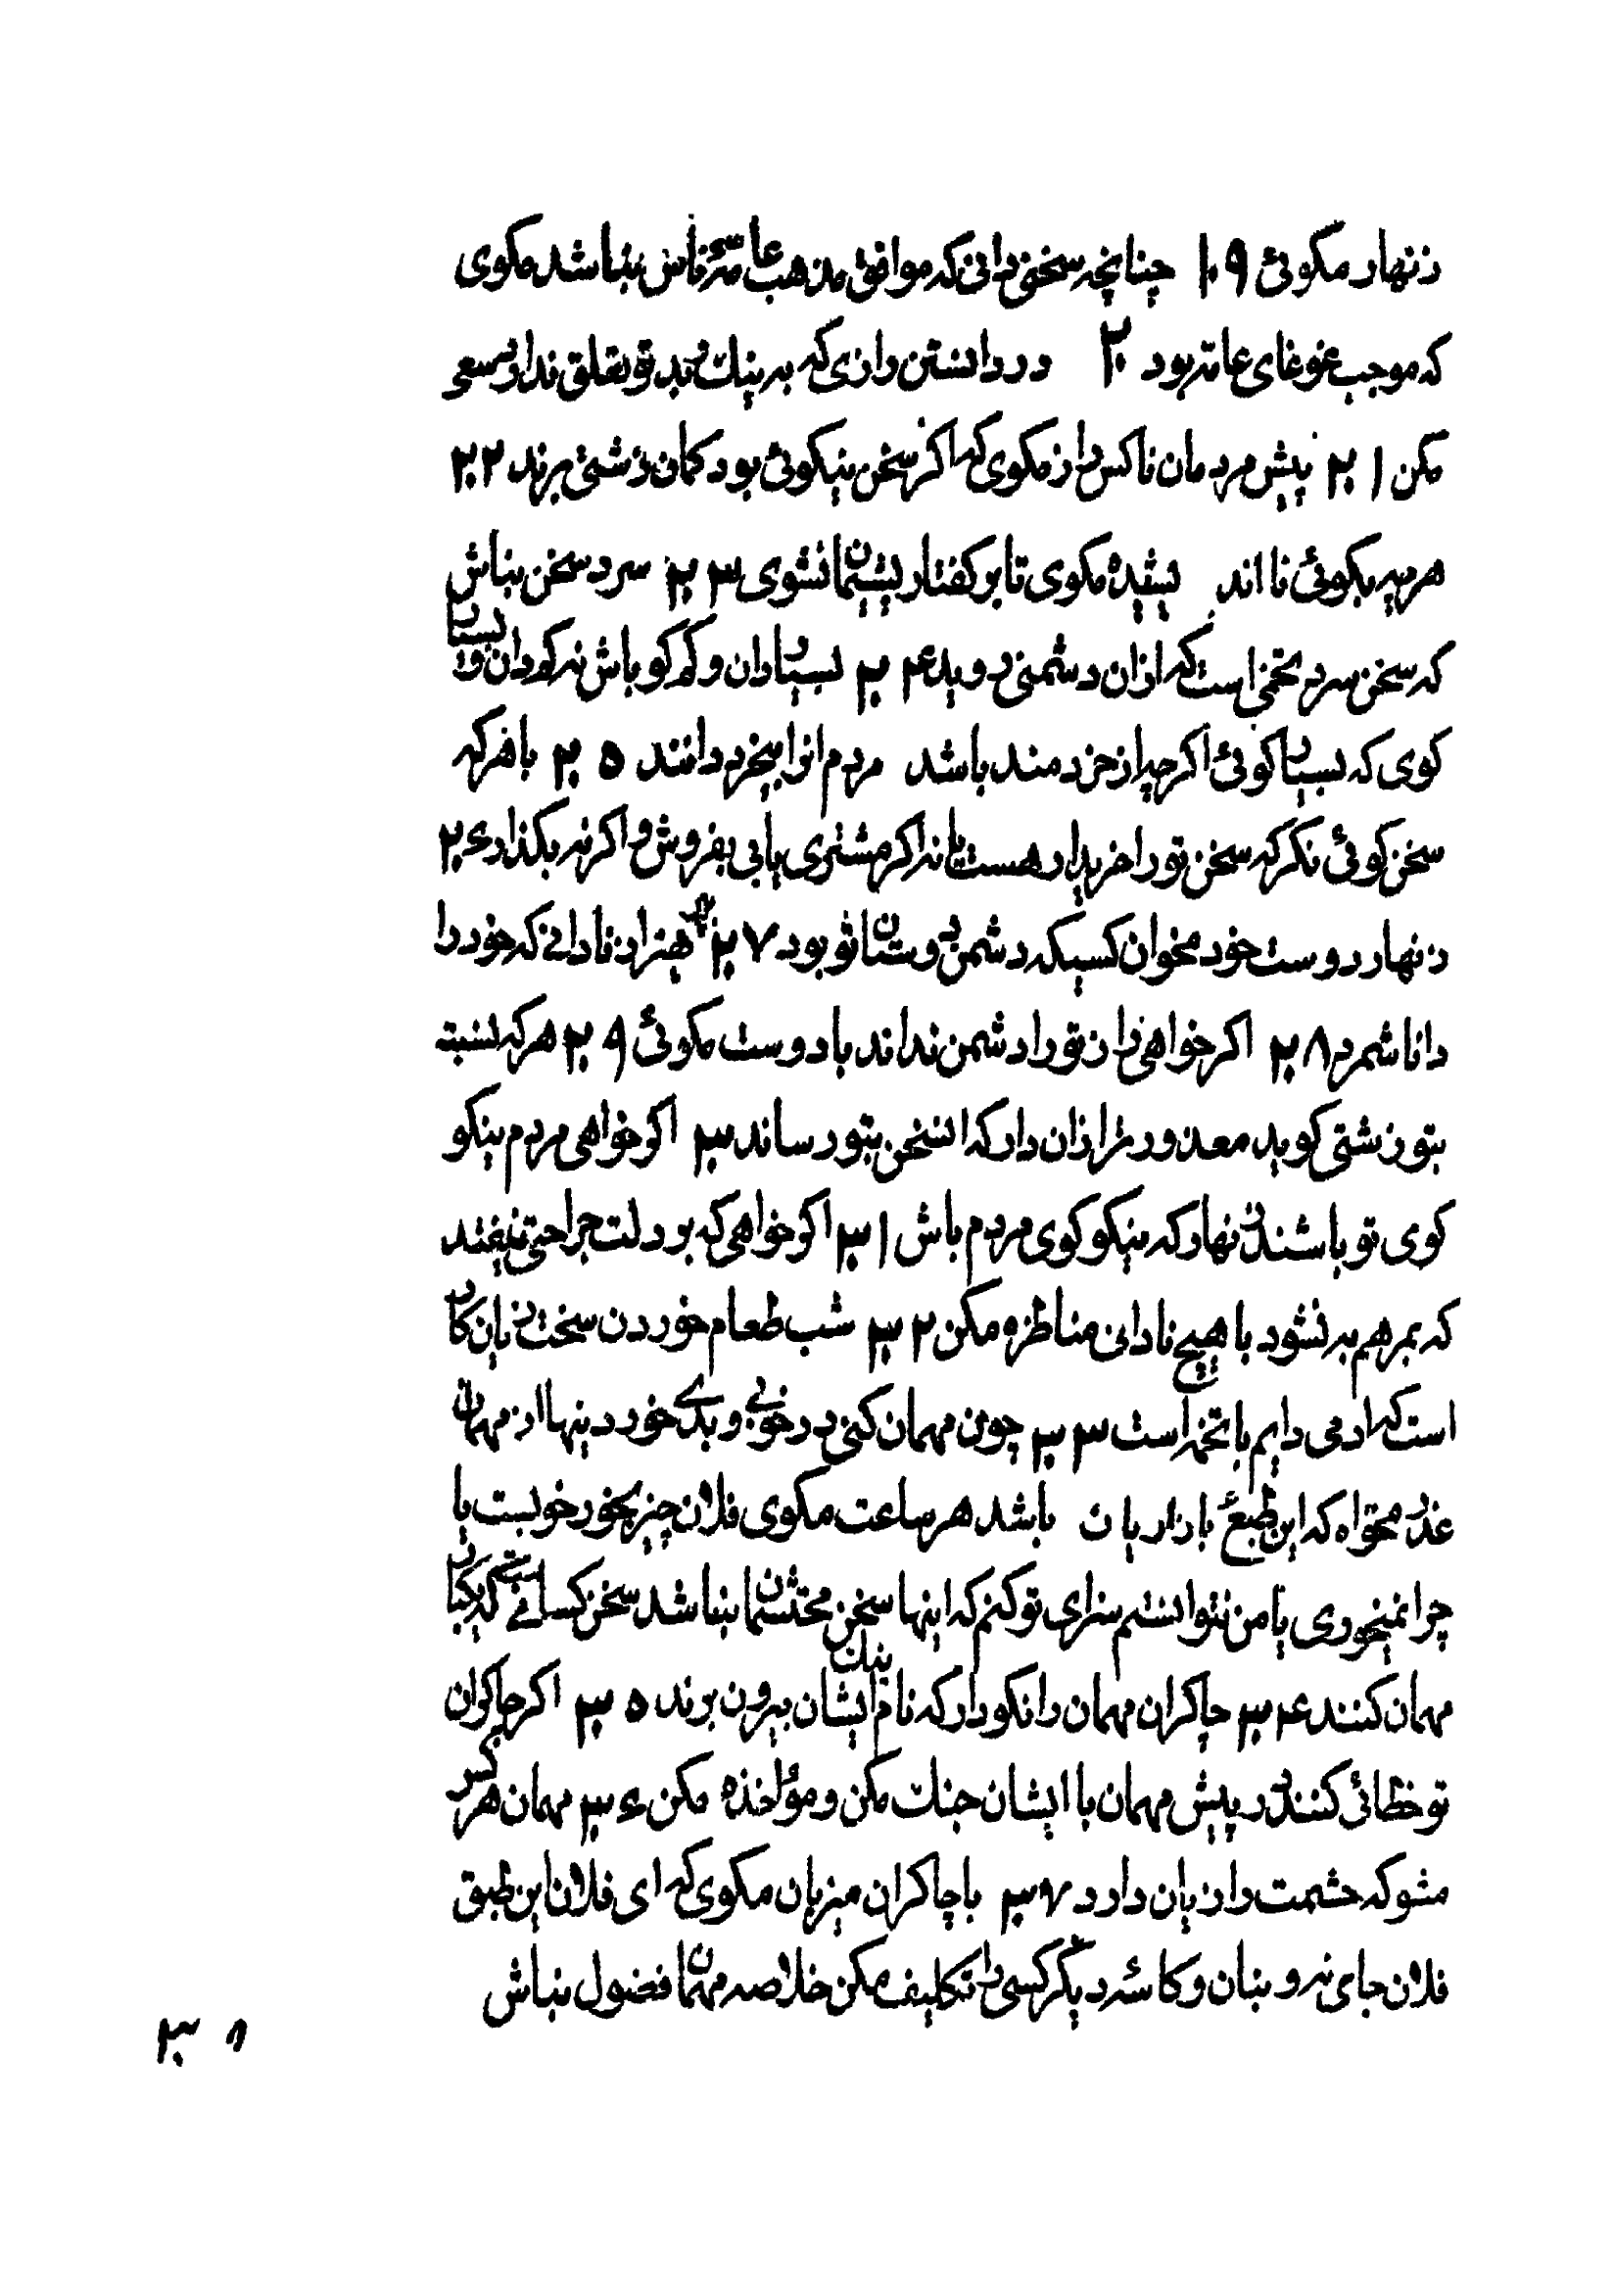 زنهار مکوئی ۱۰۹ چنانچه سخنی دانی که موافق مذهب عامّهٔ ناس نباشد مکوی
که موجب غوغای عامّه بود ۲۰ در دانستن رازی که به نیک و بد تو تعلق ندارد سعی
مکن ۲۰۱ پیش مردمان ناکس راز مکوی که اکر سخن نیکوئی بود کمان زشتی برند ۲۰۲
هر چه بکوئی نا اندیشیده مکوی تا بر کفتار پشیمان نشوی ۲۰۳ سرد سخن مباش
که سخن سرد تخمی است که ازان دشمنی روید ۲۰۴ بسیار دان و کم کو باش نه کم دان و بسیار
کوی که بسیار کوئی اکر چه از خردمند باشد مردم انرا بیخرد دانند ۲۰۵ با هر که
سخن کوئی نکر که سخن تو را خریدار هست یا نه اکر مشتری یابی بفروش و اکر نه بکذار ۲۰۶
زنهار دوست خود مخوان کسیکه دشمن دوستان تو بود ۲۰۷ بپرهیز از نادانے که خود را
دانا شمرد ۲۰۸ اکر خواهی راز تو را دشمن نداند با دوست مکوئی ۲۰۹ هر که نسبته
بتو زشتی کوید معذور تر ازان دار که انسخن بتو رساند ۳۰ اکر خواهی مردم نیکو
کوی تو باشند زنهار که نیکو کوی مردم باش ۳۰۱ اکر خواهی که بر دلت جراحتی نیفتد
که بمرهم به نشود با هیچ نادانی مناظره مکن ۳۰۲ شب طعام خوردن سخت زیان کار
است که ادمی دایم با تخمه است ۳۰۳ چون مهمان کنی در خوبی و بدے خوردینها از مهمان
عذر مخواه که این طبع بازاریان باشد هر ساعت مکوی فلان چیز بخور خوبست یا
چرا نمیخوری یا من نتوانستم سزای تو کنم که اینها سخن محتشمان نباشد سخن کسانے است که یکبار
مهمان کنند ۳۰۴ چاکران مهمان را نکو دار که نام ایشان بیرون برند ۳۰۵ اکر چاکران
تو خطائی کنند در پیش مهمان با ایشان جنک مکن و مؤاخذه مکن ۳۰۶ مهمان هر کس
مشو که حشمت را زیان دارد ۳۰۷ با چاکران میزبان مکوی که ای فلان این طبق
فلان جای نه و بنان و کاسهٔ دیکر کسی را تکلیف مکن خلاصه مهمان فضول مباش
۳۰۸